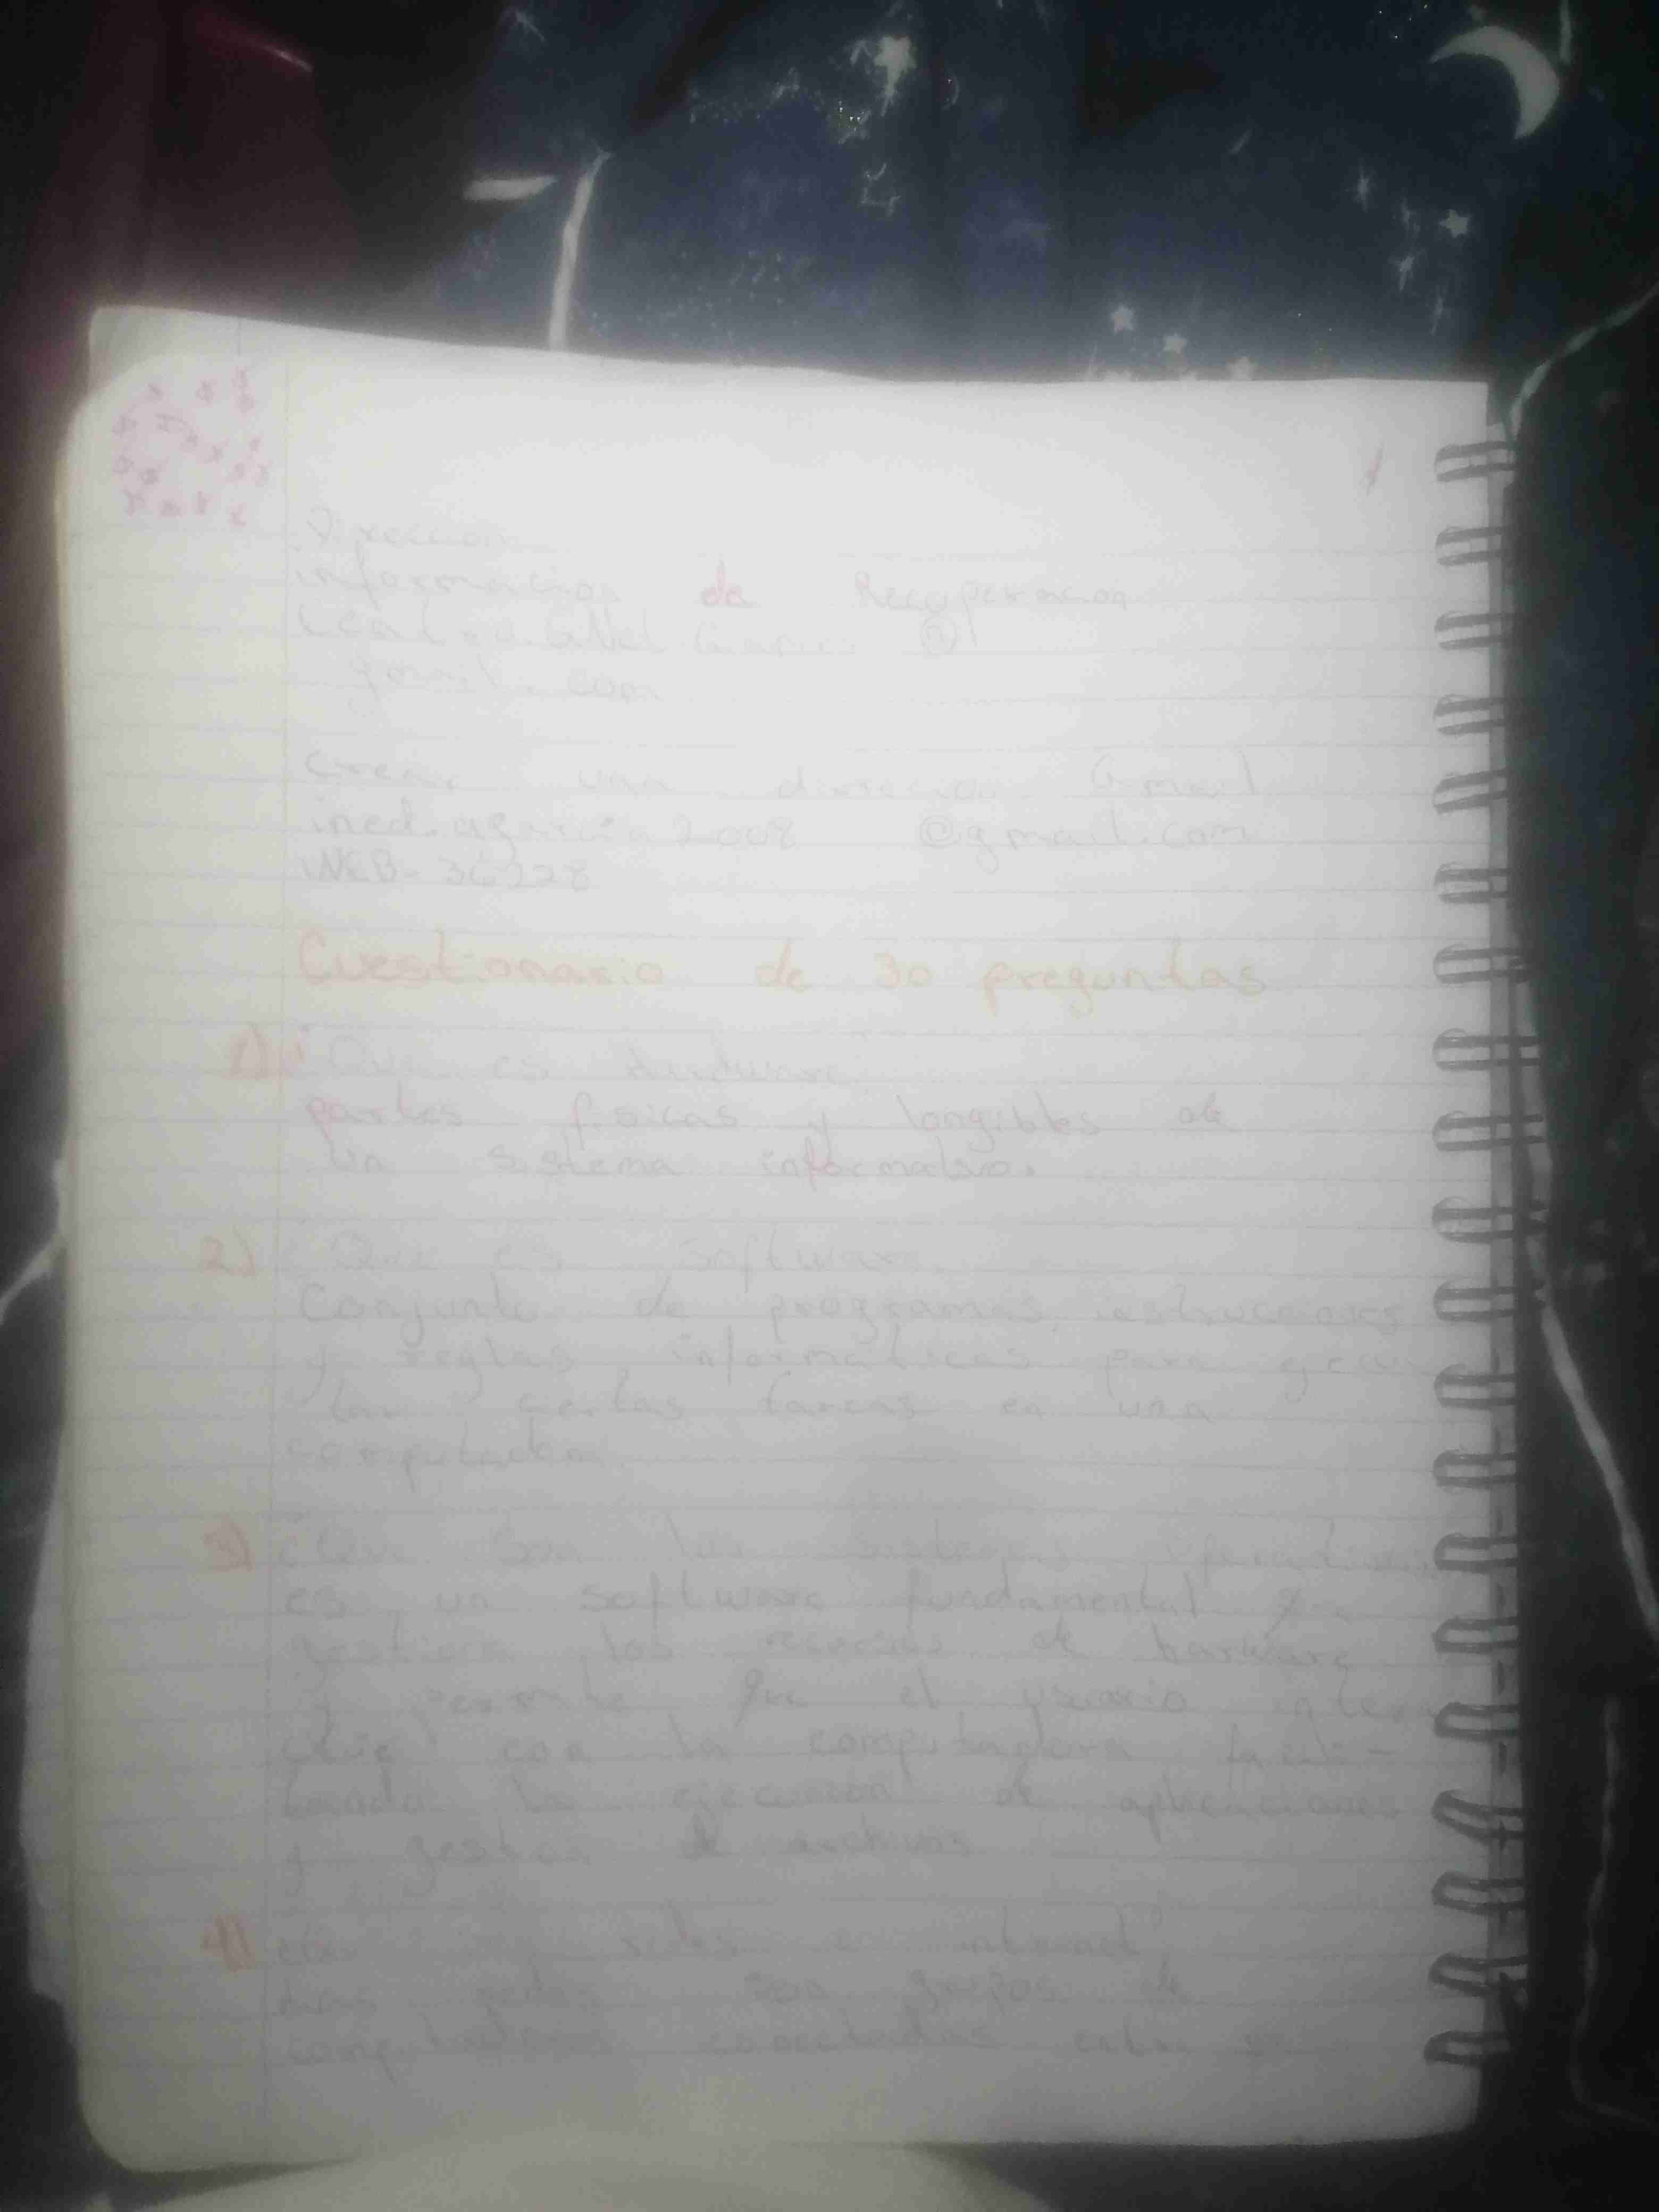 Direccion
informacion de Recuperacion
@
gmail.com
Crear una direccion Gmail
ined.agarcia2008 @gmail.com
WEB-36228
Cuestionario de 30 preguntas
1) Que es Hardware
partes fisicas y tangibles de
un sistema informatico.
2) ¿Que es Software
Conjunto de programas, instrucciones
y reglas informaticas para ejecu
tar ciertas tareas en una
computadora
3) ¿Que Son los sistemas Operativos
es un software fundamental q
gestiona los recursos de harware
y permite que el usuario inter
con la computadora facili-
tando la ejecucion de aplicaciones
y gestion de archivos
4) redes e internet
redes son grupos de
computadoras conectadas entre si